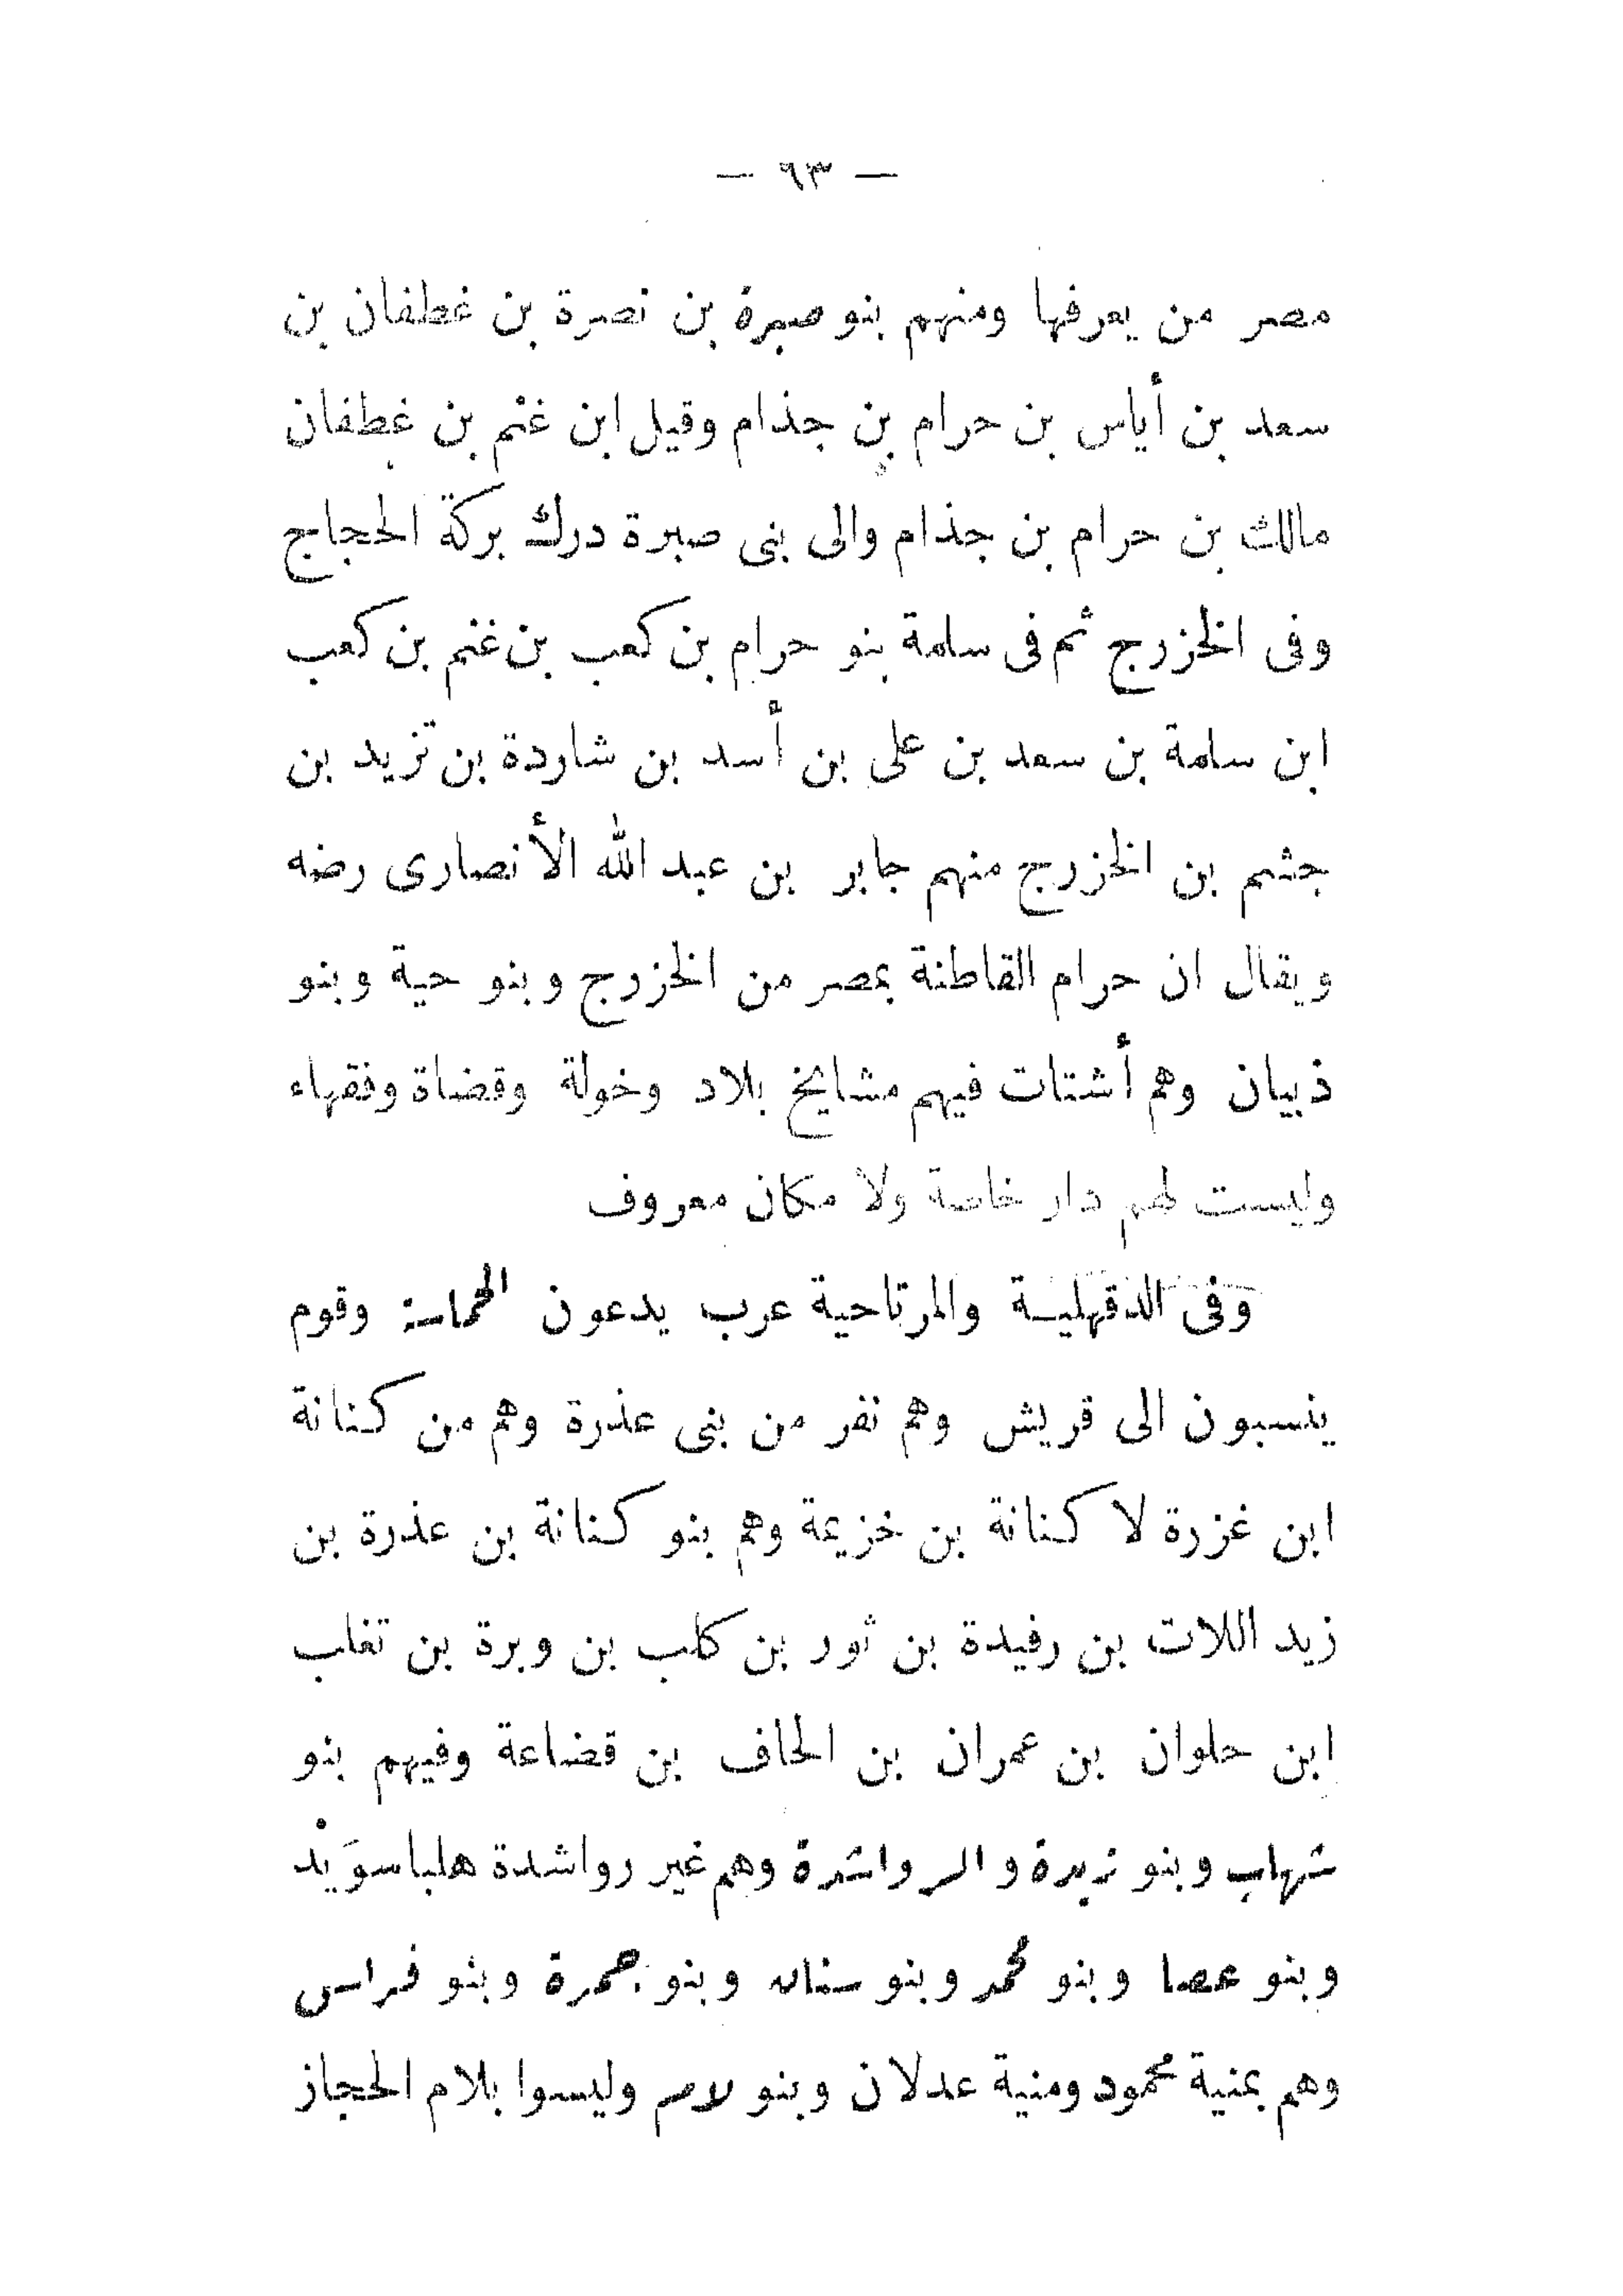 — ٦٣ —
مصر من يعرفها ومنهم بنو صبرة بن نصرة بن غطفان بن
سعد بن أياس بن حرام بن جذام وقيل ابن غنْم بن غطفان
مالك بن حرام بن جذام والى بنى صبرة درك بركة الحجاج
وفى الخزرج ثم فى سلمة بنو حرام بن كعب بن غنم بن كعب
ابن سلمة بن سعد بن على بن أسد بن شاردة بن تزيد بن
جشم بن الخزرج منهم جابر بن عبد الله الأنصارى رضه
ويقال ان حرام القاطنة بمصر من الخزرج وبنو حية وبنو
ذبيان وهم أشتات فيهم مشايخ بلاد وخولة وقضاة وفقهاء
وليست لهم دار خاصة ولا مكان معروف
وفى الدقهلية والمرتاحية عرب يدعون الحماسة وقوم
ينسبون الى قريش وهم نفر من بنى عذرة وهم من كنانة
ابن غزرة لا كنانة بن خزيمة وهم بنو كنانة بن عذرة بن
زيد اللات بن رفيدة بن ثور بن كلب بن وبرة بن تغلب
ابن حلوان بن عمران بن الحاف بن قضاعة وفيهم بنو
شهاب وبنو زبدة والرواشدة وهم غير رواشدة هلبا سوَيْد
وبنو عصا وبنو محمد وبنو سنان وبنو حمرة وبنو فراس
وهم بمنية محمود ومنية عدلان وبنو لام وليسوا بلام الحجاز